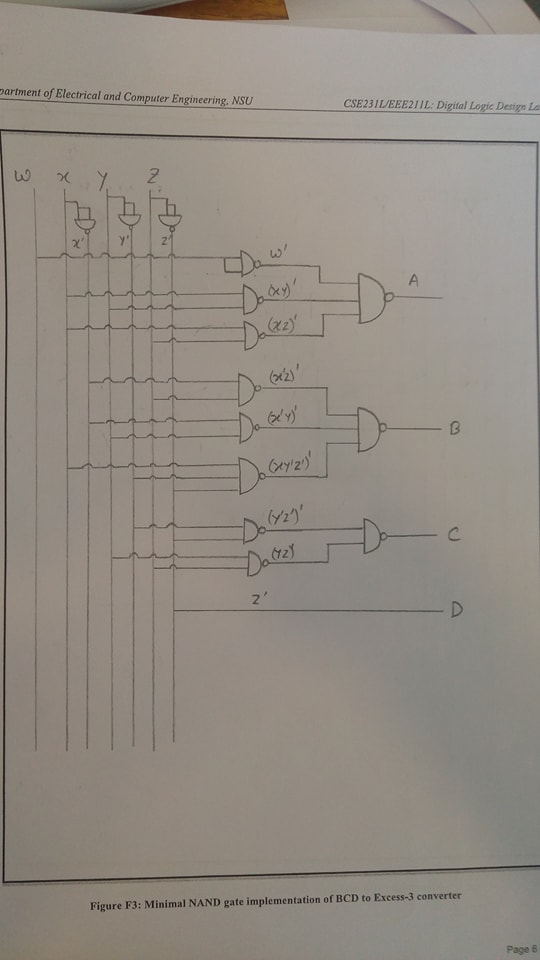 partment of Electrical and Computer Engineering, NSU
CSE231L/EEE211L: Digital Logic Design La
W x Y Z
x' Y' Z'
w'
(xy)'
A
(xz)'
(x'z)'
(x'y)'
B
(xy'z')'
(y'z')'
C
(YZ)'
Z'
D
Figure F3: Minimal NAND gate implementation of BCD to Excess-3 converter
Page 6